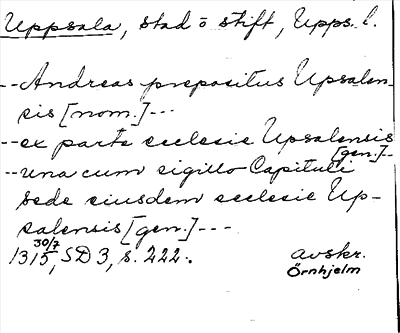 Uppsala, stad o stift, Upps. l.
--Andreas prepositus Upsalen-
sis [nom.]---
--ex parte ecclesie Upsalensis
[gen.]--
--una cum sigillo Capituli
sede eiusdem ecclesie Up-
salensis [gen.]---
1315 30/7, SD 3, s. 222.
avskr.
Örnhjelm